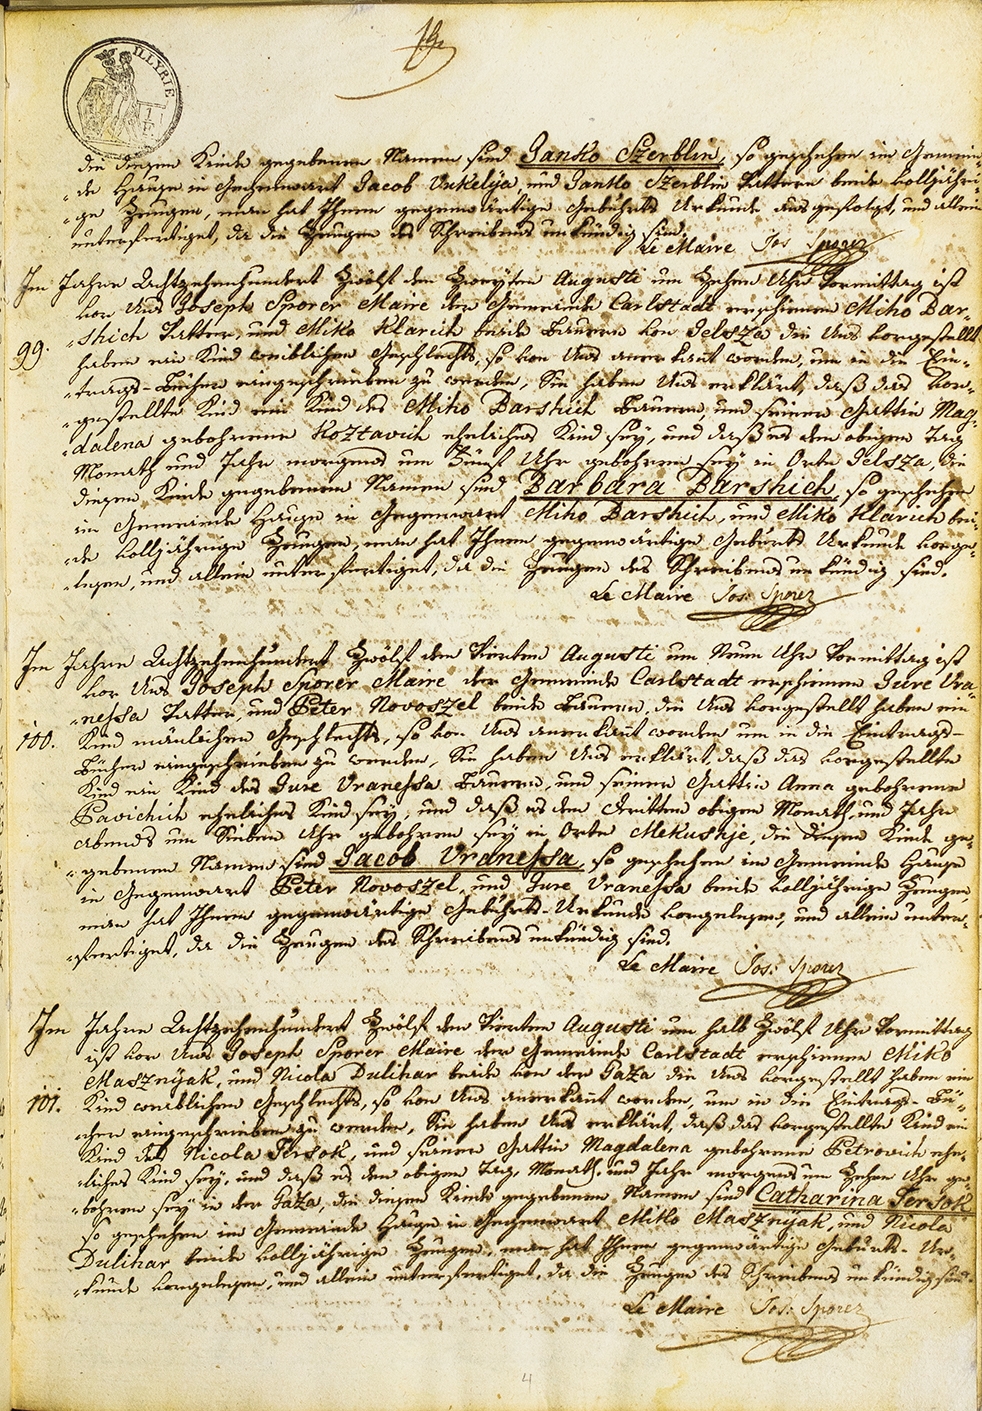 ILLYRIE
1 F.
die diesem Kinde gegebenen Namen sind Janko Szerblin, so geschehen im Gemein-
de Hause in Gegenwart Jacob Vukelya, und Janko Szerblin Vattern beide volljähri-
ge Zeugen, man hat Ihnen gegenwärtige Gebuhrts Urkunde aus gefolgt, und allein
unterfertiget, da die Zeugen des Schreibens unkündig sind.
Le Maire Jos Sporer
Im Jahre Achtzehenhundert Zwölf den Zweyten Augusti um Zehen Uhr Vormittag ist
vor Uns Joseph Sporer Maire der Gemeinde Carlstadt erschienen Miho Bar-
shich Vatter, und Miko Klarich beide Bauern von Jelsza die Uns vorgestellt
99.
haben ein Kind weiblichen Geschlechts, so von Uns anerkant worden, um in die Ein-
trags-Bücher eingeschrieben zu werden, Sie haben Uns erklärt, daß das vor-
gestellte Kind ein Kind des Miho Barshich Bauern, und seiner Gattin Mag-
dalena gebohrene Koztavich eheliches Kind sey, und daß es den obigen Tag
Monath und Jahr morgens um Fünf Uhr gebohren sey in Orte Jelsza, die
diesem Kinde gegebenen Namen sind Barbara Barshich, so geschehen
im Gemeinde Hause in Gegenwart Miho Barshich, und Miko Klarich bei-
de volljährige Zeugen, man hat Ihnen gegenwärtige Geburts Urkunde vorge-
lesen, und allein unterfertiget, da die Zeugen des Schreibens unkündig sind.
Le Maire Jos: Sporer
Im Jahre Achtzehenhundert Zwölf den Vierten Augusti um Neun Uhr Vormittag ist
vor Uns Joseph Sporer Maire der Gemeinde Carlstadt erschienen Jure Vra-
nessa Vatter, und Peter Novoszel beide Bauern, die Uns vorgestellt haben ein
100.
Kind mänlichen Geschlechts, so von Uns anerkant worden um in die Eintrags-
Bücher eingeschrieben zu werden, Sie haben Uns erklärt, daß das vorgestellte
Kind ein Kind des Jure Vranessa Bauern, und seiner Gattin Anna gebohrene
Pavichich eheliches Kind sey, und daß es den dritten obigen Monath, und Jahr
abends um Sieben Uhr gebohren sey in Orte Mekushje, die diesem Kinde ge-
gebenen Namen sind Jacob Vranessa, so geschehen im Gemeinde Hause
in Gegenwart Peter Novoszel, und Jure Vranessa beide volljährige Zeugen,
man hat Ihnen gegenwärtige Gebuhrts-Urkunde vorgelesen, und allein unter-
fertiget, da die Zeugen des Schreibens unkündig sind.
Le Maire Jos: Sporer
Im Jahre Achtzehenhundert Zwölf den Vierten Augusti um halb Zwölf Uhr Vormittag
ist vor Uns Joseph Sporer Maire der Gemeinde Carlstadt erschienen Miko
Masznyak, und Nicola Dulihar beide von der Gaza die Uns vorgestellt haben ein
101.
Kind weiblichen Geschlechts, so von Uns anerkant worden, um in die Eintrags-Bü-
cher eingeschrieben zu werden, Sie haben Uns erklärt, daß das vorgestellte Kind ein
Kind des Nicola Tersok, und seiner Gattin Magdalena gebohrene Petrovich ehe-
liches Kind sey, und daß es den obigen Tag, Monath, und Jahr morgens um Zehen Uhr ge-
bohren sey in der Gaza, die diesem Kinde gegebenen Namen sind Catharina Tersok
so geschehen im Gemeinde Hause in Gegenwart Miko Masznyak, und Nicola
Dulihar beide volljährige Zeugen, man hat Ihnen gegenwärtige Geburts-Ur-
kunde vorgelesen, und allein unterfertiget, da die Zeugen des Schreibens unkündig sind.
Le Maire Jos: Sporer
4